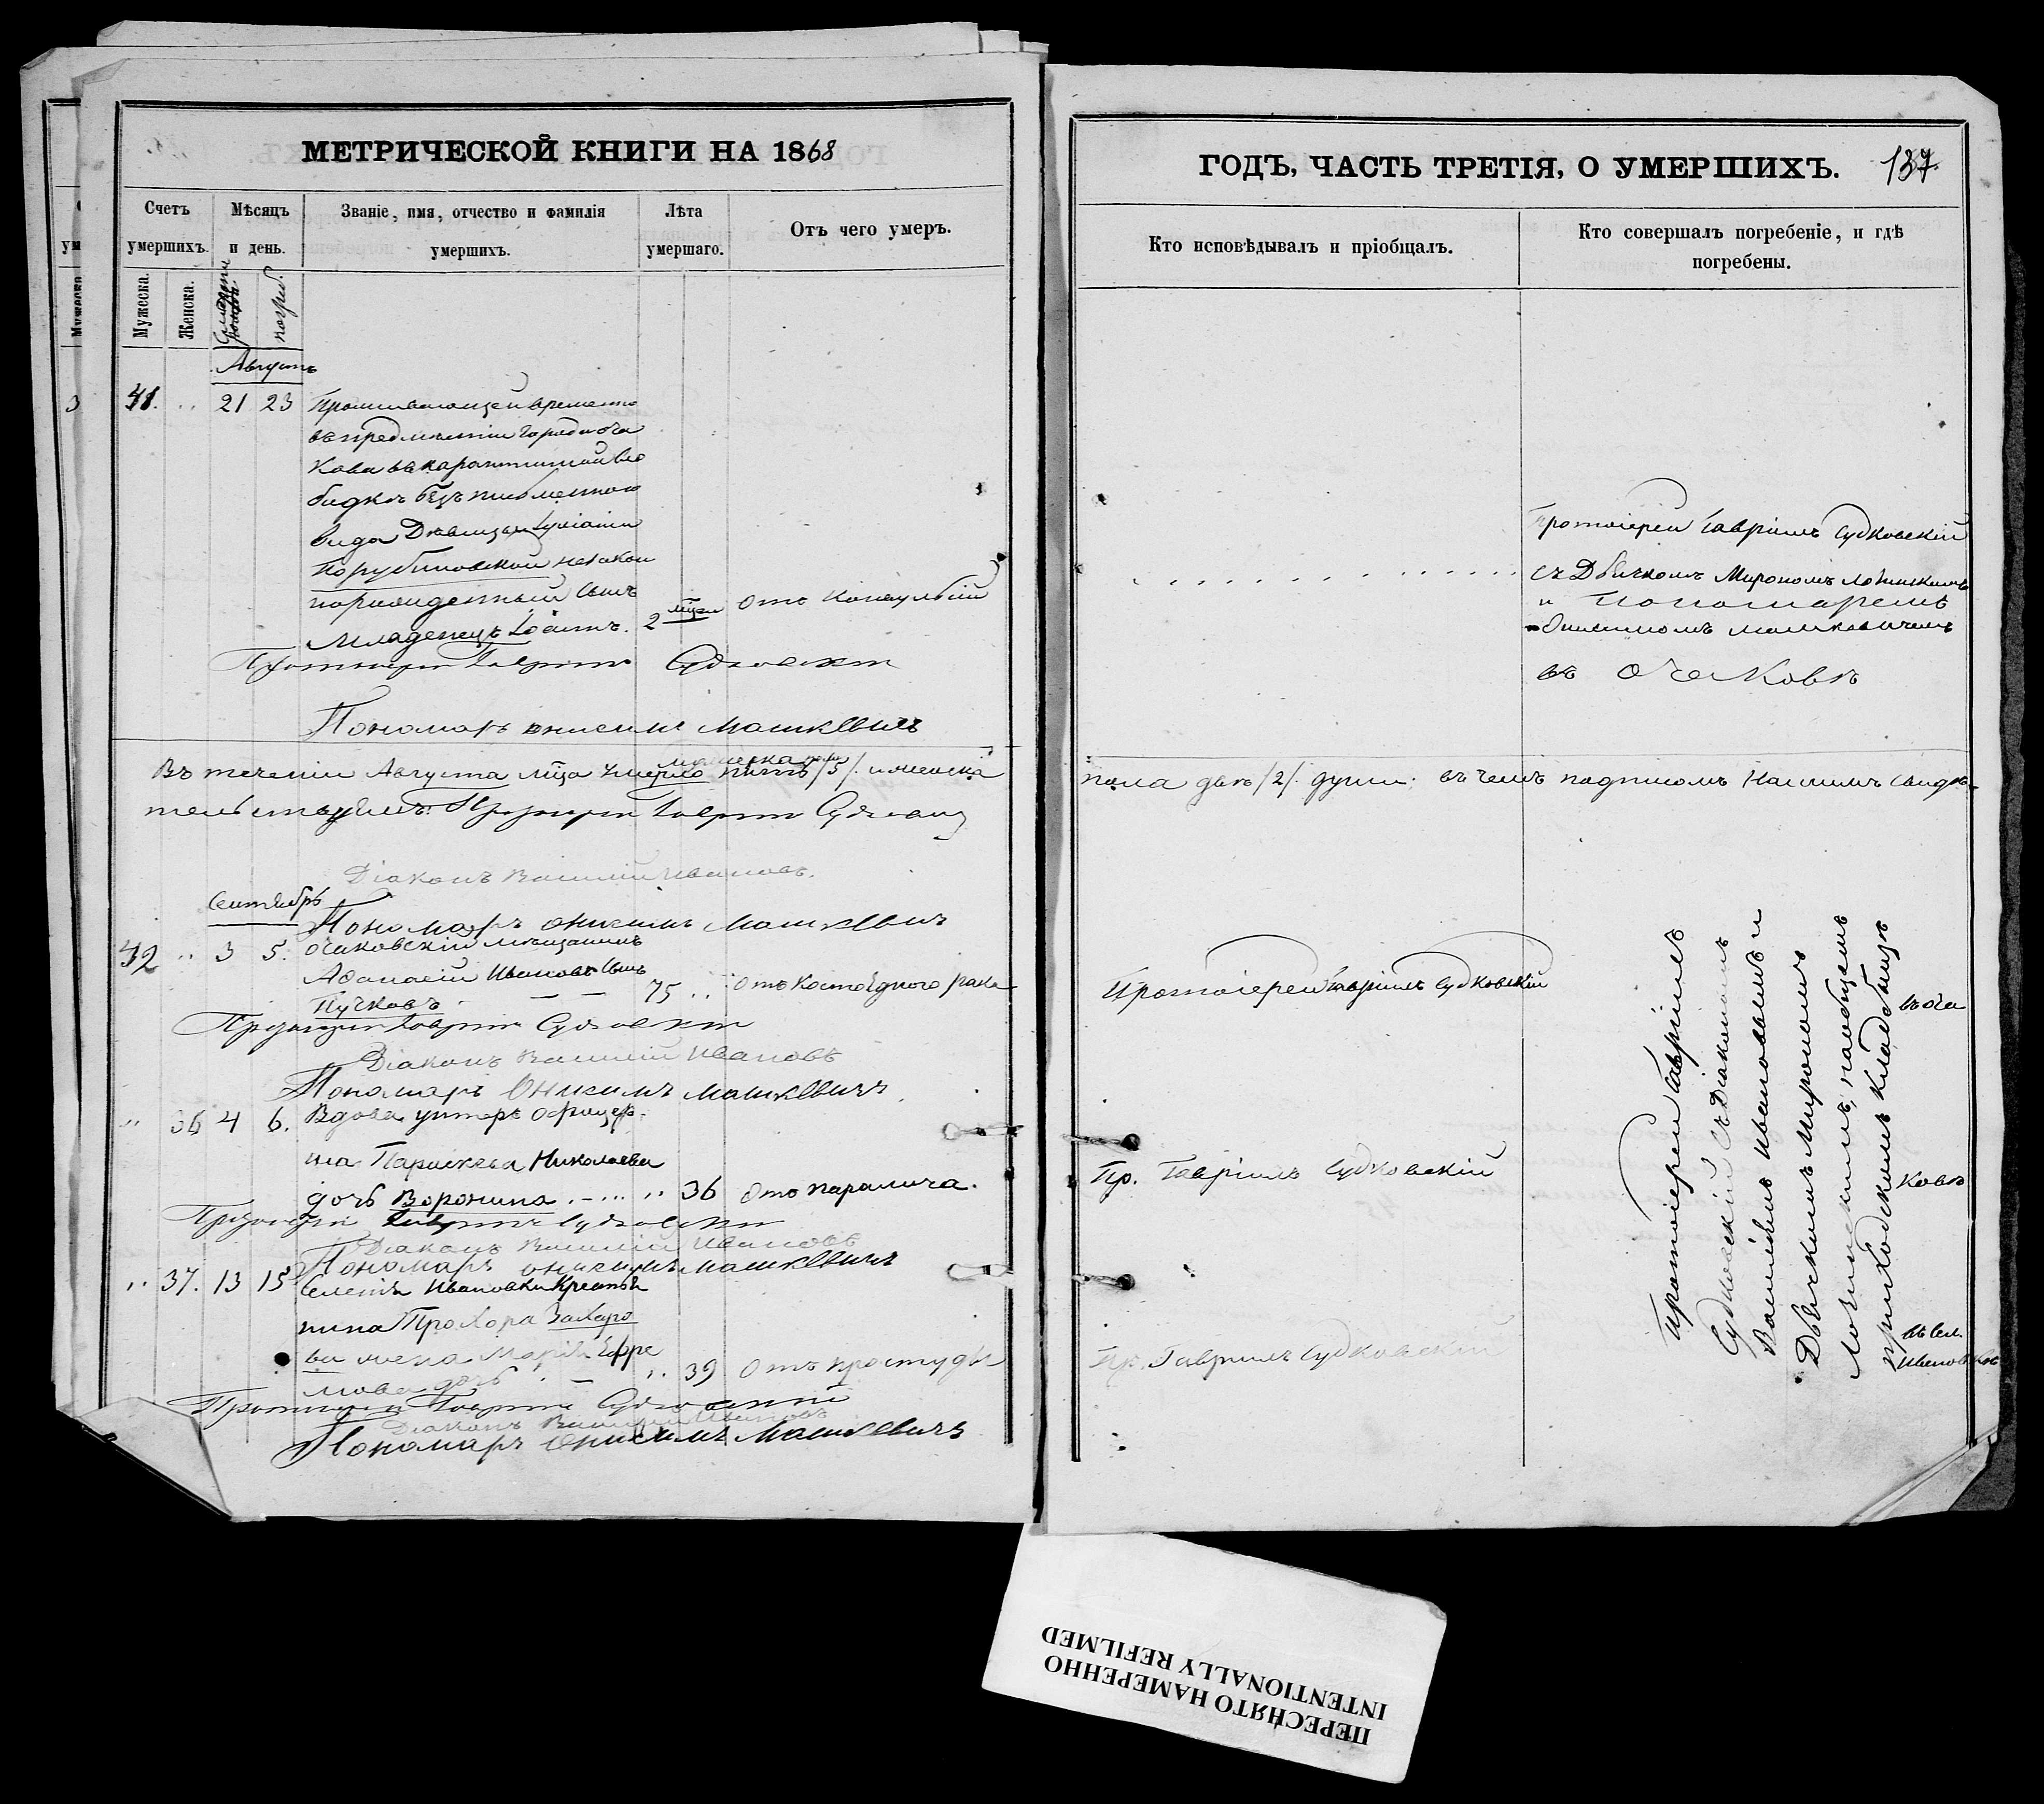 МЕТРИЧЕСКОЙ КНИГИ НА 1868
Счетъ умершихъ.
Мѣсяцъ и день.
Званіе, имя, отчество и фамилія умершихъ.
Лѣта умершаго.
Отъ чего умеръ.
Мужеска.
Женска.
погреб.
Августъ
41. " 21 23 Проживающей временно
въ предмѣстіи города Оча
кова въ карантинной сло
бодкѣ безъ письменнаго
вида Дѣвицы
Порубиновской незакон
норожденный сынъ
Младенецъ Іоаннъ. 2 мѣся Отъ конвульсій
Протоіерей Гавріилъ Судковскій
Пономарь Онисимъ Машкевичъ
Въ теченіи Августа мѣца умерло мужеска пола пять /5/. и женска
тельствуемъ: Протоіерей Гавріилъ Судковскій
Діаконъ Василій Ивановъ.
Сентябрь
Пономарь Онисимъ Машкевичъ
42 " 3 5. Очаковскій мѣщанинъ
Афанасій Ивановъ сынъ
Пучковъ 75 " Отъ костоѣднаго рака
Протоіерей Гавріилъ Судковскій
Діаконъ Василій Ивановъ
Пономарь Онисимъ Машкевичъ
" 36 4 6. Вдова унтеръ офицер-
ша Параскева Николаева
дочь Воронина " 36 Отъ паралича.
Протоіерей Гавріилъ Судковскій
Діаконъ Василій Ивановъ
Пономарь Онисимъ Машкевичъ
" 37. 13 15 Селенія Ивановки крестья
нина Прохора Захаро
ва жена Марія Ефре
мова дочь " 39 Отъ простуды
Протоіерей Гавріилъ Судковскій
Діаконъ Василій Ивановъ
Пономарь Онисимъ Машкевичъ
ГОДЪ, ЧАСТЬ ТРЕТІЯ, О УМЕРШИХЪ. 137.
Кто исповѣдывалъ и пріобщалъ.
Кто совершалъ погребеніе, и гдѣ погребены.
Протоіерей Гавріилъ Судковскій
съ Дьячкомъ Мирономъ Лозинскимъ
и Пономаремъ
Онисимомъ Машкевичемъ
въ Очаковѣ
пола двѣ /2/. души. въ чемъ подписомъ нашимъ свидѣ-
Протоіерей Гавріилъ Судковскій
Пр. Гавріилъ Судковскій
Пр. Гавріилъ Судковскій
Протоіерей Гавріилъ
Судковскій съ Діакономъ
Василіемъ Ивановымъ и
Дьячкомъ Мирономъ
Лозинскимъ, на общемъ
приходскомъ кладбищѣ
въ Оча
ковѣ
въ сел.
Ивановкѣ
ПЕРЕСНЯТО НАМЕРЕННО
INTENTIONALLY REFILMED